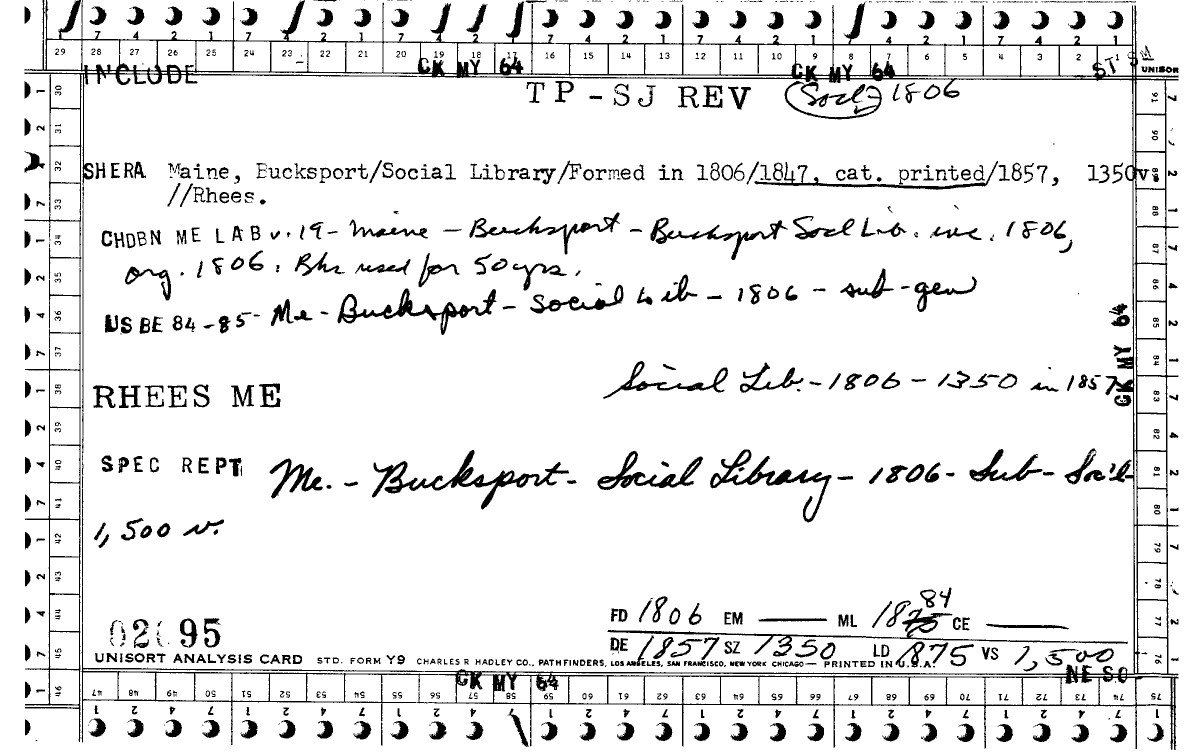 7 4 2 1 7 4 2 1 7 4 2 1 7 4 2 1 7 4 2 1 7 4 2 1
29 28 27 26 25 24 23 22 21 20 19 18 17 16 15 14 13 12 11 10 9 8 7 6 5 4 3 2 1
INCLUDE CK MY 64 CK MY 64 ST SM UNISORT
TP-SJ REV Socl 1806
SHERA Maine, Bucksport/Social Library/Formed in 1806/1847, cat. printed/1857, 1350v.
//Rhees.
CHDBN ME LAB v. 19- Maine - Bucksport - Bucksport Socl Lib. inc. 1806,
org. 1806. Bks used for 50 yrs.
US BE 84-85- Me- Bucksport- Social Lib - 1806 - sub-gen
CK MY 64
RHEES ME Social Lib.-1806-1350 in 1857
SPEC REPT Me. - Bucksport- Social Library- 1806- Sub- Soc'l-
1,500 v.
84
FD 1806 EM — ML 1875 CE —
95
DE 1857 SZ 1350 LD 1875 VS 1,500
UNISORT ANALYSIS CARD STD. FORM Y9 CHARLES R HADLEY CO., PATHFINDERS, LOS ANGELES, SAN FRANCISCO, NEW YORK CHICAGO— PRINTED IN U.S.A.
CK MY 64 NE SO
46 47 48 49 50 51 52 53 54 55 56 57 58 59 60 61 62 63 64 65 66 67 68 69 70 71 72 73 74 75